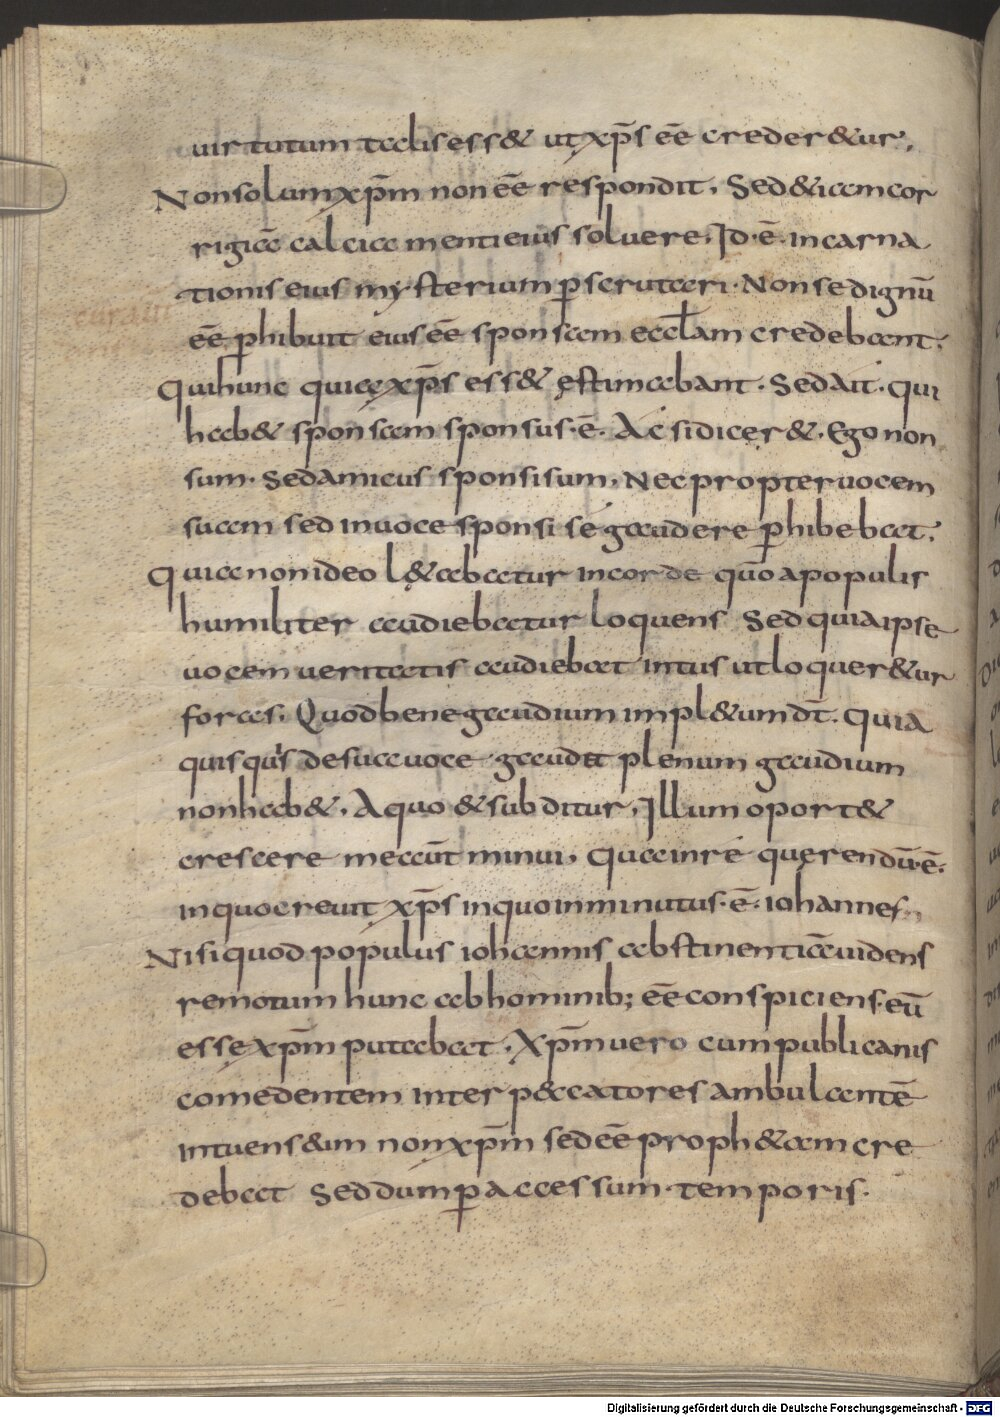 uirtutum talis ess& ut xp̄s eē creder&ur.
Non solum xp̄m non eē respondit. Sed & iam cor
rigiā calciamenti eius soluere. Id ē. incarna
tionis eius mysterium ꝑscrutari. Non se dignū
eē ꝑhibuit eius eē sponsam eccłam credebant.
Qui hunc quia xp̄s ess& ęstimabant. Sed ait. Qui
hab& sponsam sponsus. ē. Ac si dicer&. Ego non
sum. Sed amicus sponsi sum. Nec propter uocem
suam sed in uoce sponsi se gaudere ꝑhibebat.
Quia non ideo l&abatur in corde quō a populis
humiliter audiebatur loquens Sed quia ipse
uocem ueritatis audiebat intus ut loquer&ur
foras. Quod bene gaudium impl&um dt̄. Quia
quisquis de sua uoce gaudet plenum gaudium
non hab&. A quo & subditur. Illum oport&
crescere me aūt minui. Qua in re querendū. ē.
in quo creuit xp̄s in quo inminutus. ē. iohannes
Nisi quod populus iohannis abstinentiā uidens
remotum hunc ab hominib; eē conspiciens. eū
esse xp̄m putabat. Xp̄m uero cum publicanis
comedentem inter p&catores ambulantē
intuens eum non xp̄m sed eē proph&am cre
debat Sed dum ꝑ accessum temporis.
Digitalisierung gefördert durch die Deutsche Forschungsgemeinschaft - DFG